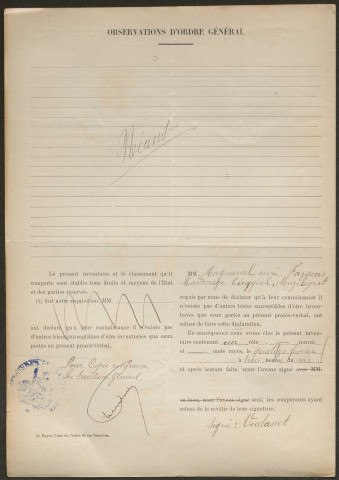 OBSERVATIONS D'ORDRE GÉNÉRAL
Néant
Le présent inventaire et le classement qu'il
comporte sont établis tous droits et moyens de l'État
et des parties réservés.
(1) Sur notre réquisition MM.
ont déclaré qu'à leur connaissance il n'existe pas
d'autres biens susceptibles d'être inventoriés que ceux
portés au présent procès-verbal.
Pour Copie conforme
Le Secrétaire général,
(1) Rayer l'une ou l'autre de ces formules.
MM.
requis par nous de déclarer qu'à leur connaissance il
n'existe pas d'autres biens susceptibles d'être inven-
toriés que ceux portés au présent procès-verbal, ont
refusé de faire cette déclaration.
En conséquence nous avons clos le présent inven-
taire contenant rôle mots
et mots rayés, le
à heures
et après lecture faite, nous l'avons signé avec MM.
ou bien, nous l'avons signé seul, les comparants ayant
refusé de le revêtir de leur signature.
Signé : Violanet